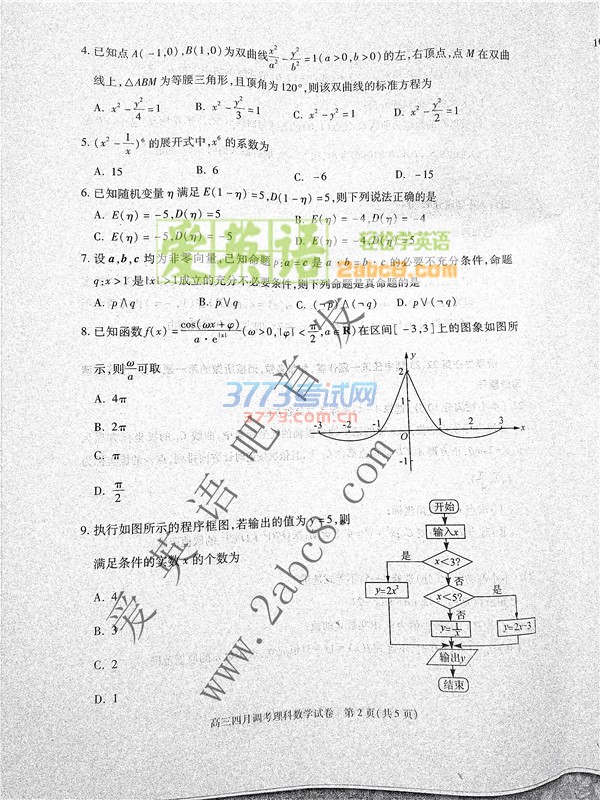 4. 已知点 A(-1,0),B(1,0)为双曲线x²/a² - y²/b² =1(a>0,b>0)的左,右顶点,点 M 在双曲
线上,△ABM 为等腰三角形,且顶角为120°,则该双曲线的标准方程为
A. x² - y²/4 =1 B. x² - y²/3 =1 C. x² - y² =1 D. x² - y²/2 =1
5. (x² - 1/x)⁶ 的展开式中,x⁶ 的系数为
A. 15 B. 6 C. -6 D. -15
6. 已知随机变量 η 满足 E(1-η)=5,D(1-η)=5,则下列说法正确的是
A. E(η)=-5,D(η)=5 B. E(η)=-4,D(η)=-4
C. E(η)=-5,D(η)=-5 D. E(η)=-4,D(η)=5
7. 设 a,b,c 均为非零向量,已知命题 p:a=c 是 a·b=b·c 的必要不充分条件,命题
q:x>1 是|x|>1成立的充分不必要条件,则下列命题是真命题的是
A. p∧q B. p∨q C. (¬p)∧(¬q) D. p∨(¬q)
8. 已知函数 f(x)= cos(ωx+φ)/(a·e^|x|) (ω>0,|φ|<π/2,a∈R)在区间[-3,3]上的图象如图所
示,则ω/a可取
A. 4π
B. 2π
C. π
D. π/2
y
2
1
-3 -2 -1 O 1 2 3 x
-1
9. 执行如图所示的程序框图,若输出的值为 y=5,则
满足条件的实数 x 的个数为
A. 4
B. 3
C. 2
D. 1
开始
输入x
是
x<3?
否
是
y=2x²
x<5?
否
y=1/x
y=2x-3
输出y
结束
高三四月调考理科数学试卷 第 2 页(共 5 页)
爱英语
轻松学英语
2abc8.com
3773考试网
3773.com.cn
爱英语吧首发
www.2abc8.com